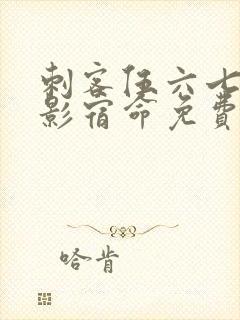 刺客伍六七
影宿命免费
哈肯